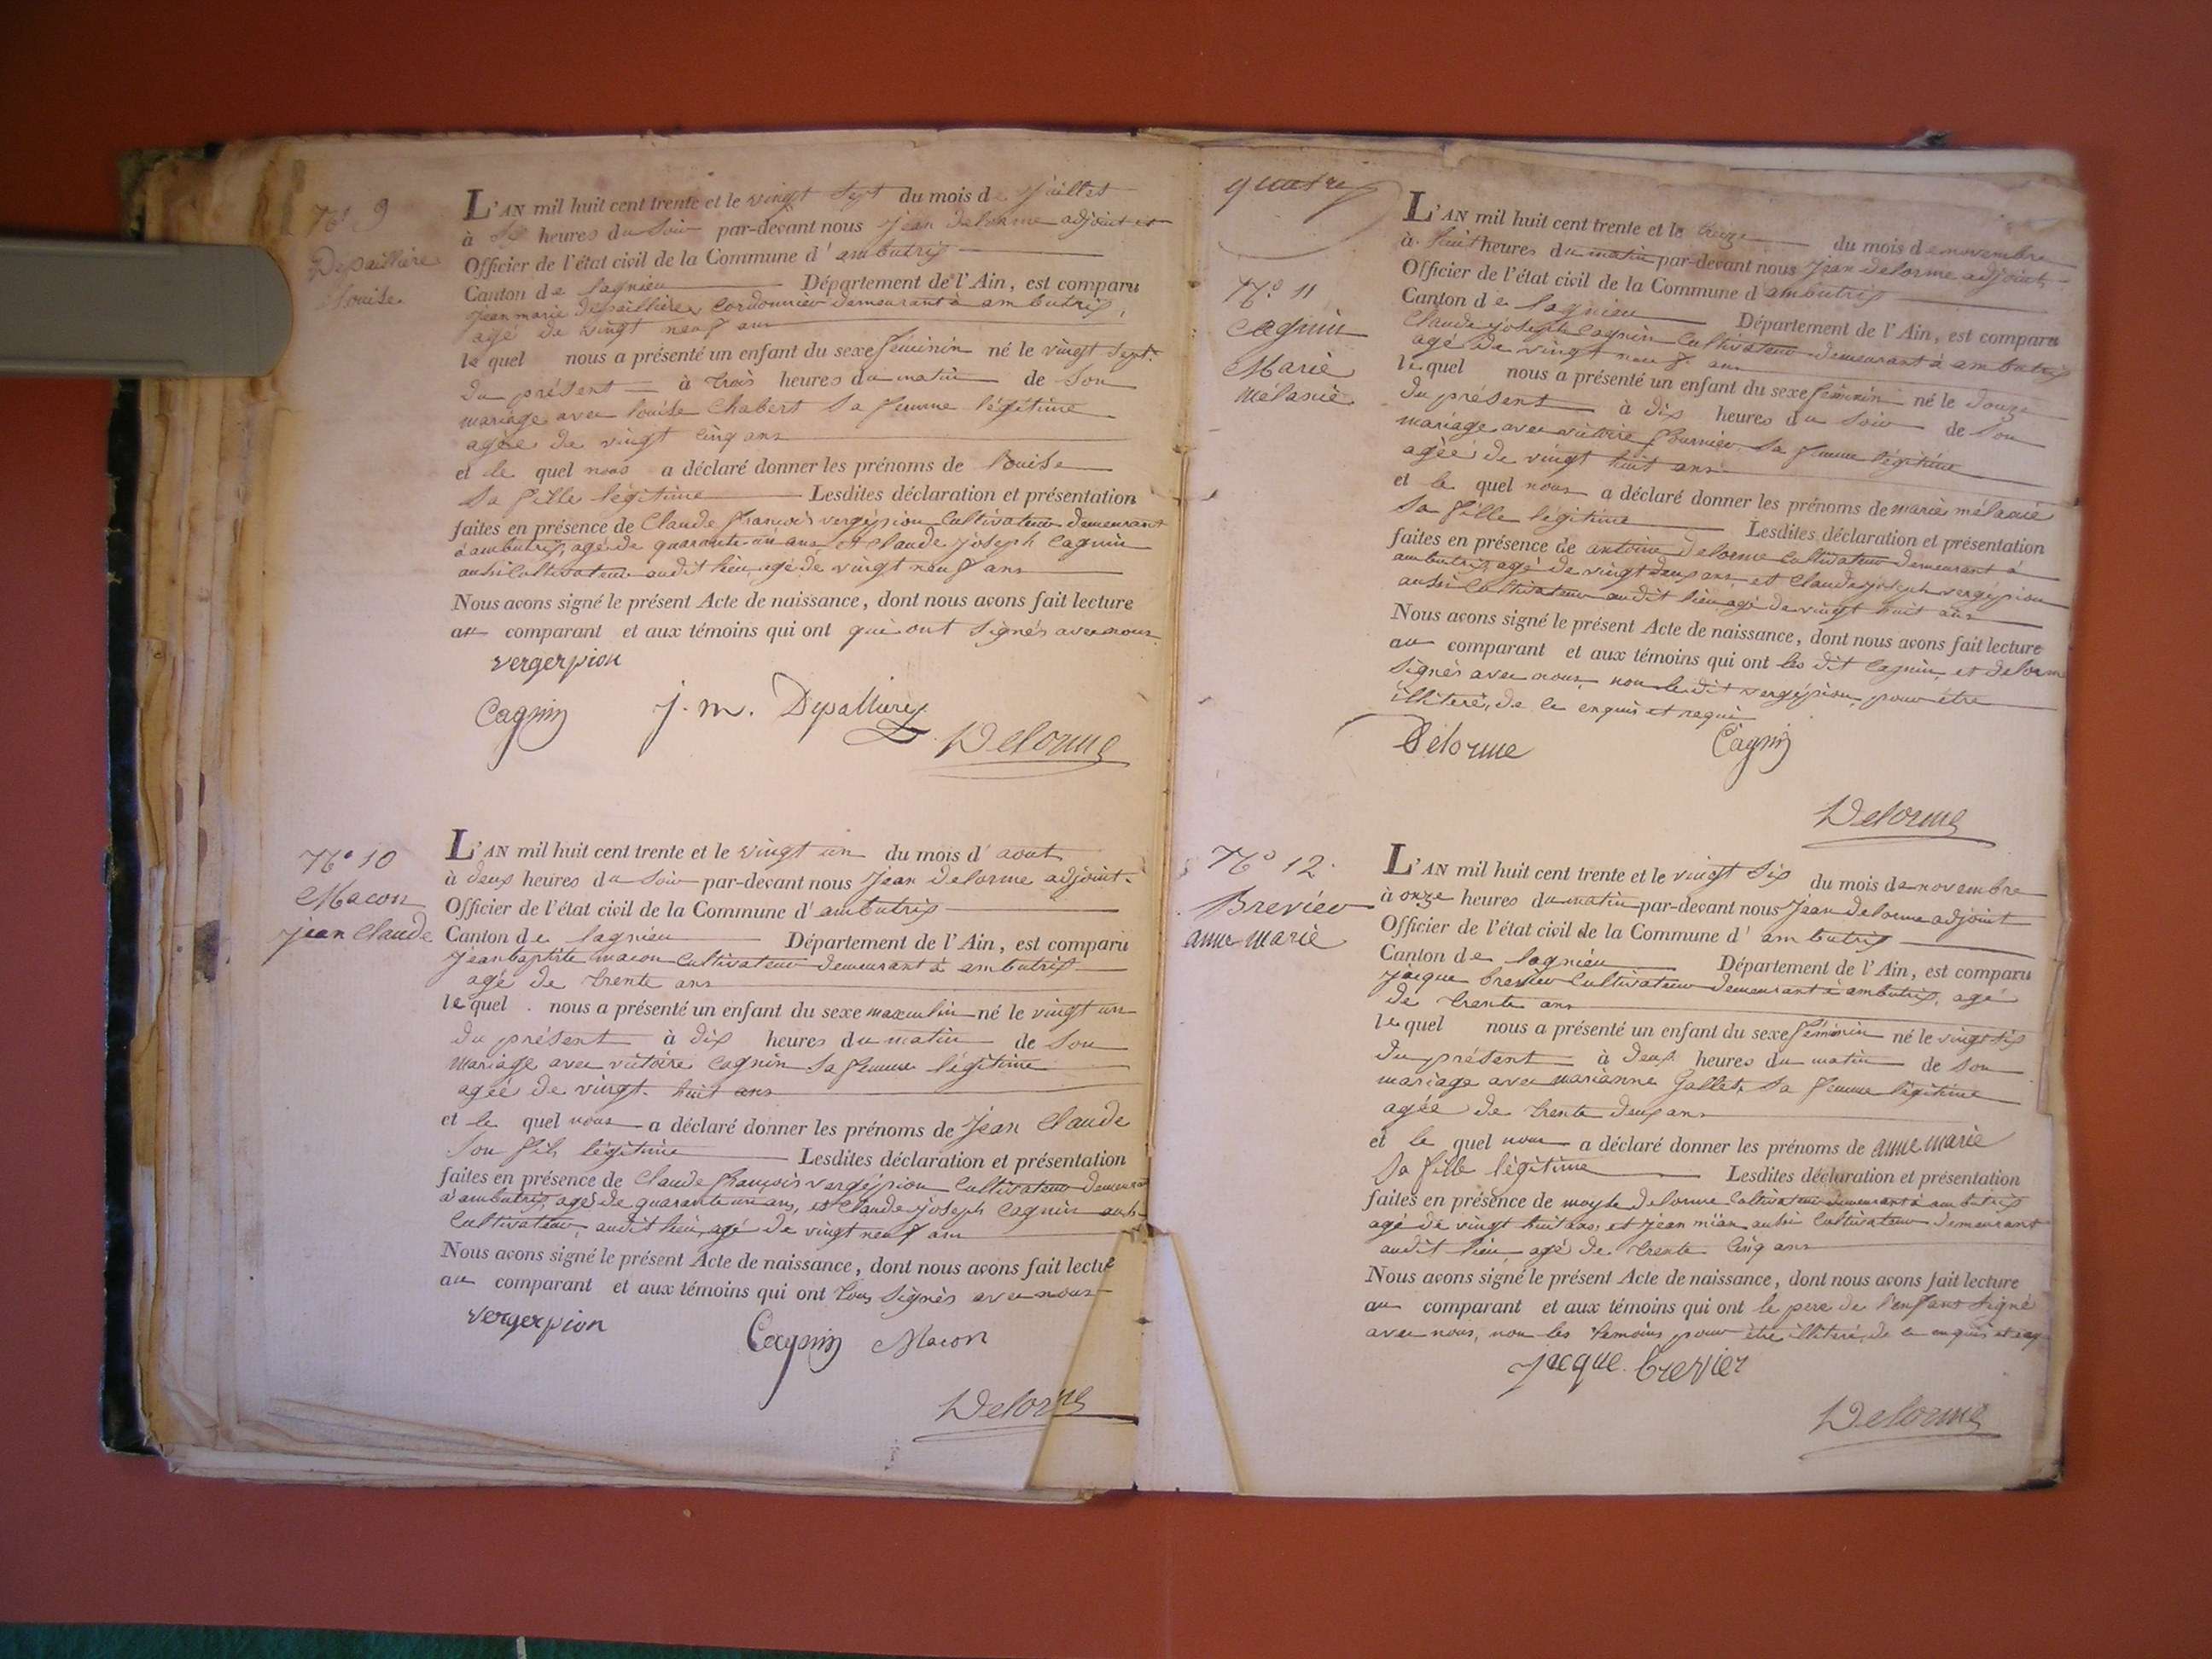 N.° 9
Depaillière
Louise
L'AN mil huit cent trente et le vingt sept du mois de juillet
à six heures du soir par-devant nous jean delorme adjoint et
Officier de l'état civil de la Commune d'ambutrix
Canton de lagnieu Département de l'Ain, est comparu
jean marie depaillière, cordonnier demeurant à ambutrix,
agé de vingt neuf ans
lequel nous a présenté un enfant du sexe féminin né le vingt sept
du présent à trois heures du matin de son
mariage avec louise Chabert sa femme légitime
agée de vingt cinq ans
et le quel nous a déclaré donner les prénoms de louise
sa fille légitime Lesdites déclaration et présentation
faites en présence de Claude françois vergépion cultivateur demeurant
à ambutrix, agé de quarante un ans, et claude joseph Cagnin
aussi Cultivateur audit lieu, agé de vingt neuf ans
Nous avons signé le présent Acte de naissance, dont nous avons fait lecture
au comparant et aux témoins qui ont qui ont signés avec nous
vergerpion
Cagnin j. m. Depallière
Delorme
N.° 10
Macon
jean Claude
L'AN mil huit cent trente et le vingt un du mois d'aout
à deux heures du soir par-devant nous jean delorme adjoint
Officier de l'état civil de la Commune d'ambutrix
Canton de lagnieu Département de l'Ain, est comparu
jean baptiste macon Cultivateur demeurant à ambutrix
agé de trente ans
lequel nous a présenté un enfant du sexe masculin né le vingt un
du présent à dix heures du matin de son
mariage avec victoire Cagnin sa femme légitime
agée de vingt huit ans
et le quel nous a déclaré donner les prénoms de jean Claude
son fils légitime Lesdites déclaration et présentation
faites en présence de Claude françois vergépion Cultivateur demeurant
à ambutrix, agé de quarante un ans, et Claude joseph Cagnin aussi
Cultivateur, audit lieu, agé de vingt neuf ans
Nous avons signé le présent Acte de naissance, dont nous avons fait lecture
au comparant et aux témoins qui ont tous signés avec nous
vergerpion
Cagnin Macon
Delorme
quatre
N.° 11
Cagnin
Marie
Mélanie
L'AN mil huit cent trente et le treize du mois de novembre
à huit heures du matin par-devant nous jean delorme adjoint
Officier de l'état civil de la Commune d'ambutrix
Canton de lagnieu Département de l'Ain, est comparu
Claude joseph Cagnin Cultivateur demeurant à ambutrix
agé de vingt neuf ans
lequel nous a présenté un enfant du sexe féminin né le douze
du présent à dix heures du soir de son
mariage avec victoire fournier sa femme légitime
agée de vingt huit ans
et le quel nous a déclaré donner les prénoms de marie mélanie
sa fille légitime Lesdites déclaration et présentation
faites en présence de antoine delorme Cultivateur demeurant à
ambutrix, agé de vingt deux ans, et Claude joseph vergépion
aussi Cultivateur audit lieu agé de vingt huit ans
Nous avons signé le présent Acte de naissance, dont nous avons fait lecture
au comparant et aux témoins qui ont les dit Cagnin, et delorme
signés avec nous, non ledit vergépion, pour être
illiteré, de ce enquis et requi
Delorme Cagnin
Delorme
N.° 12
Brevier
anne marie
L'AN mil huit cent trente et le vingt six du mois de novembre
à onze heures du matin par-devant nous jean delorme adjoint
Officier de l'état civil de la Commune d'ambutrix
Canton de lagnieu Département de l'Ain, est comparu
jacque brevier Cultivateur demeurant à ambutrix, agé
de trente ans
lequel nous a présenté un enfant du sexe féminin né le vingt six
du présent à deux heures du matin de son
mariage avec marianne Gallet, sa femme légitime
agée de trente deux ans
et le quel nous a déclaré donner les prénoms de anne marie
sa fille légitime Lesdites déclaration et présentation
faites en présence de moyse delorme Cultivateur demeurant à ambutrix
agé de vingt huit ans, et jean aussi Cultivateur demeurant
audit lieu agé de trente cinq ans
Nous avons signé le présent Acte de naissance, dont nous avons fait lecture
au comparant et aux témoins qui ont le pere de l'enfant signé
avec nous, non les temoins pour être illiteré, de ce enquis et
jacque brevier
Delorme